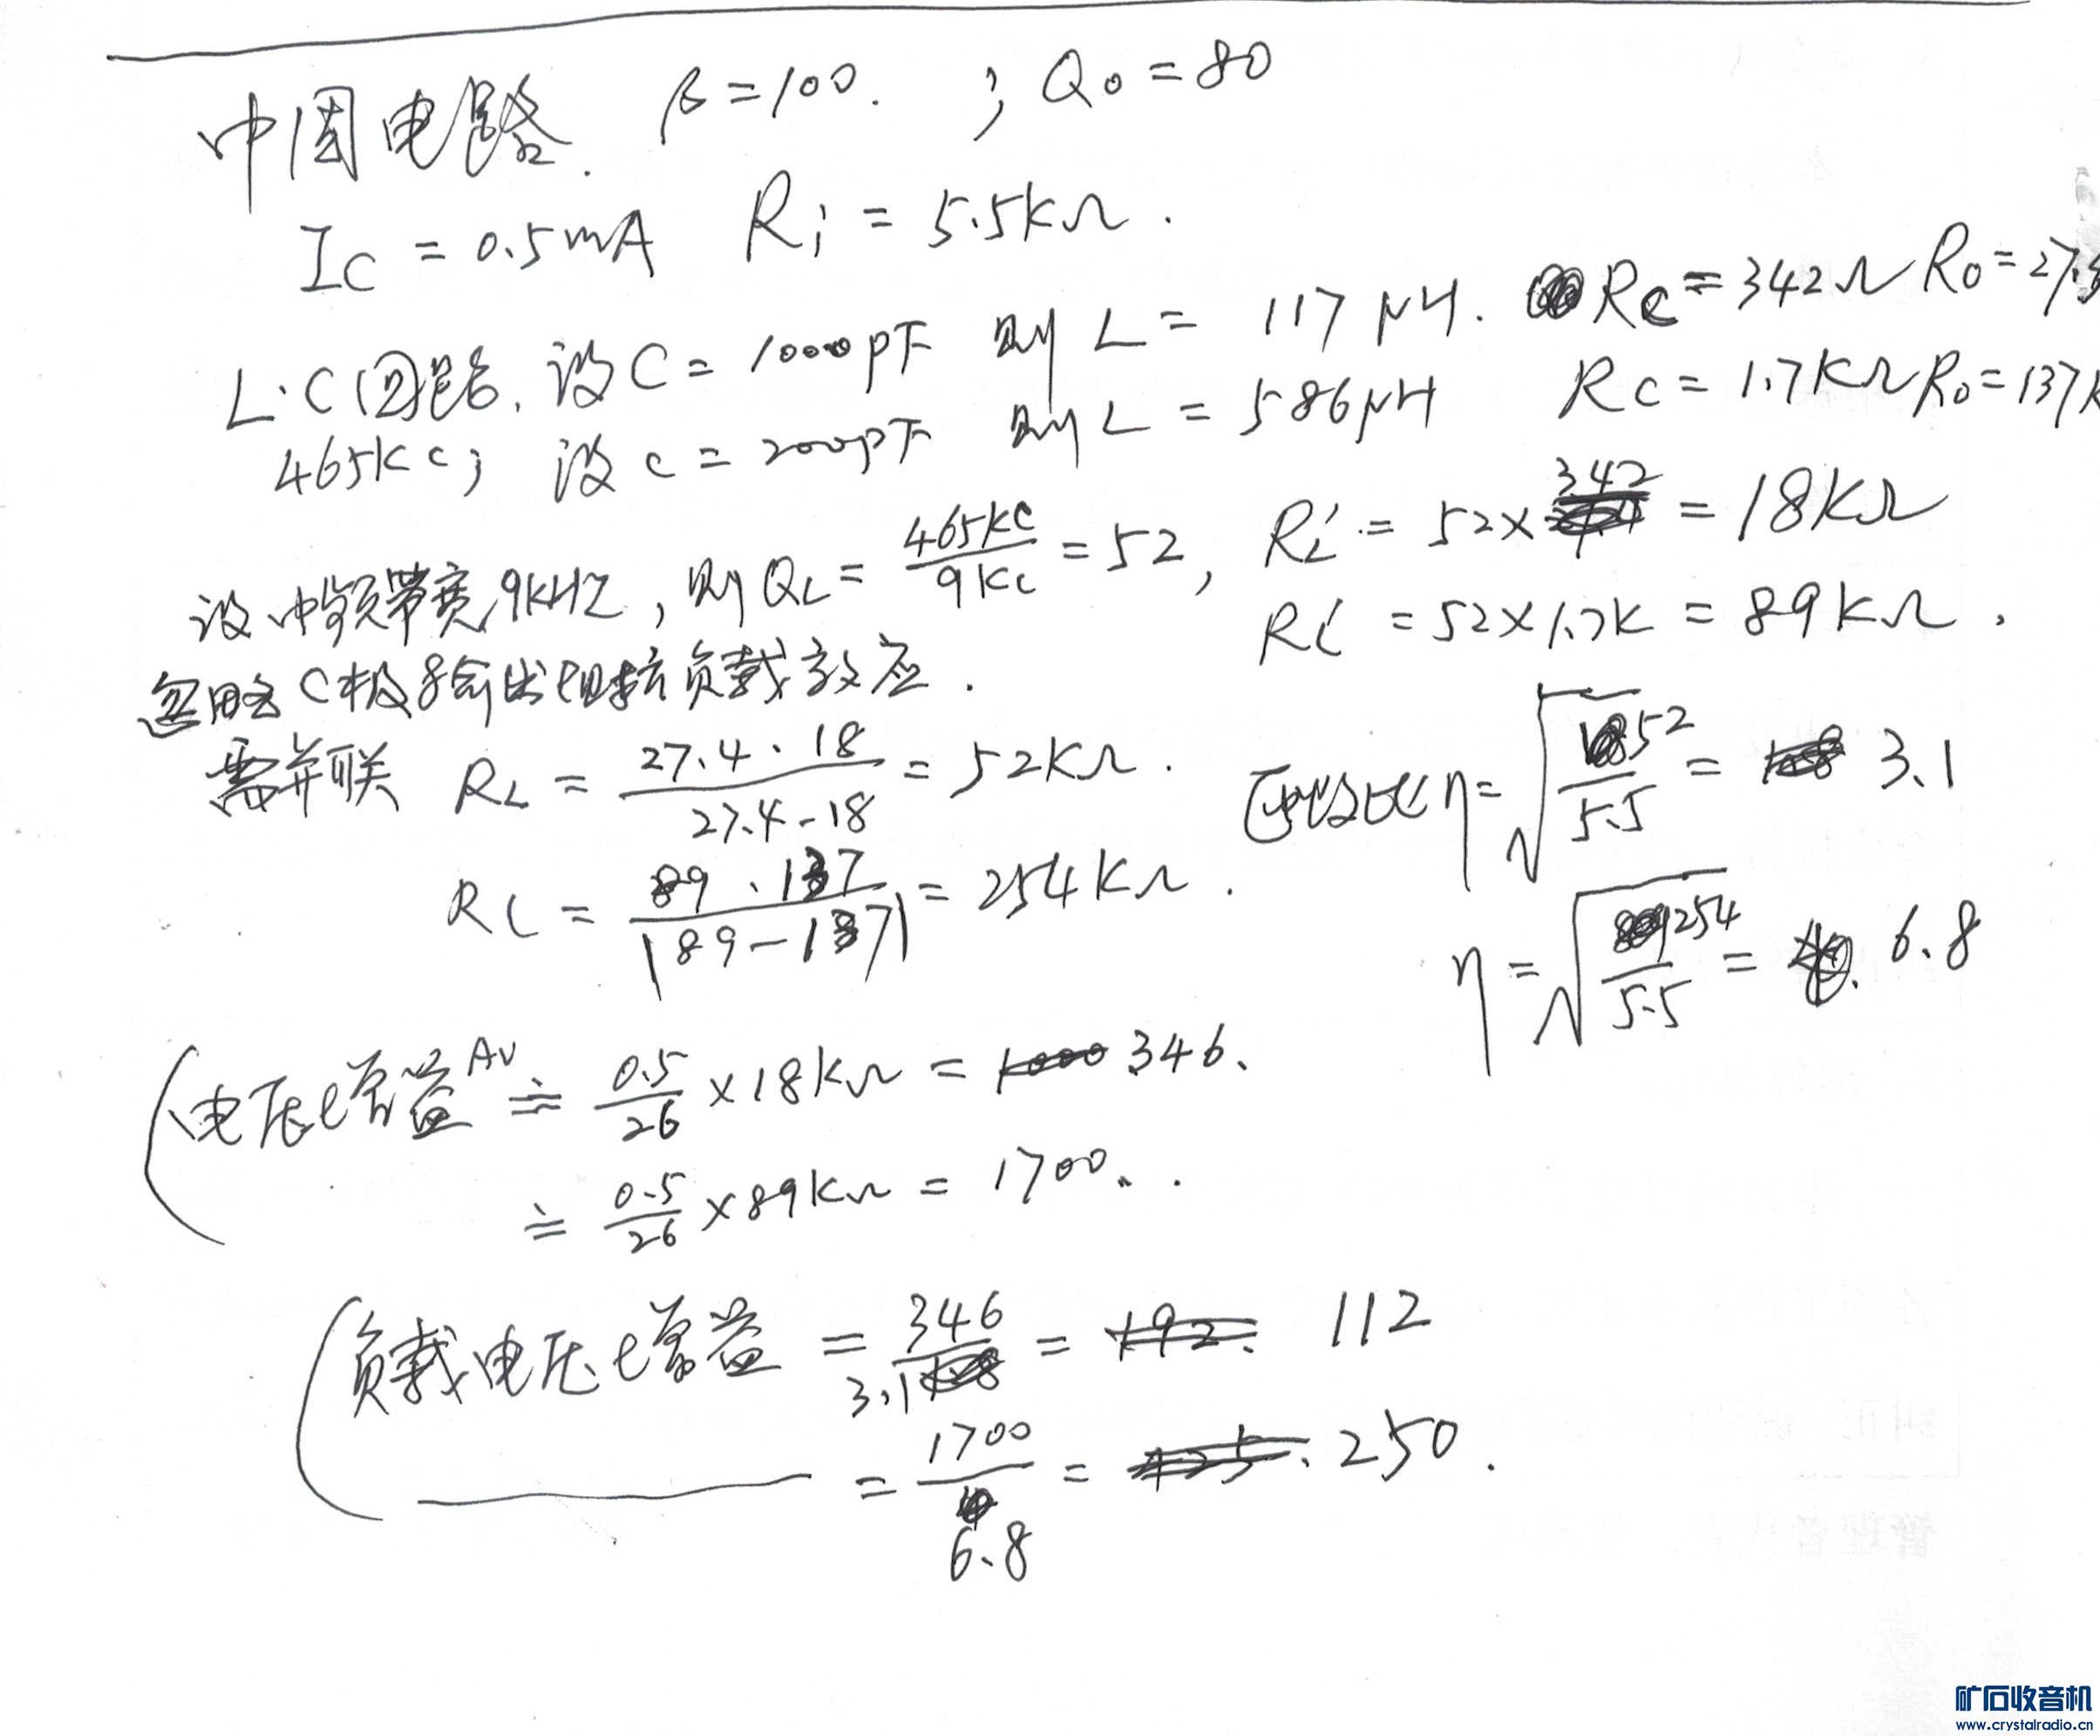 中周电路. β=100. ; Q₀=80
I_C = 0.5mA R_i = 5.5kΩ.
L·C回路, 设C= 1000pF 则 L= 117μH. R_C=342Ω R₀=27.
465kc; 设 c = 200pF 则 L = 586μH R_C = 1.7KΩ R₀=137k
设中频带宽9KHZ, 则 Q_L = 465kc/9kc = 52, R_L' = 52×342 = 18KΩ
R_L' = 52×1.7K = 89KΩ.
忽略C极输出阻抗负载效应.
需并联 R_L = 27.4·18/27.4-18 = 52KΩ. 匝数比η=√52/5.5 = 3.1
R_L = 89·137/|89-137| = 254KΩ. η=√254/5.5 = 6.8
(电压增益Av ≐ 0.5/26 ×18KΩ = 346.
≐ 0.5/26 ×89KΩ = 1700.
(负载电压增益 = 346/3.1 = 112
= 1700/6.8 = 250.
矿石收音机
www.crystalradio.cn